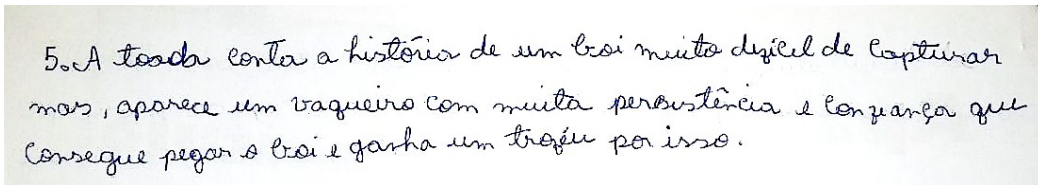 5. A toada conta a história de um boi muito difícil de capturar
mas, aparece um vaqueiro com muita persistência e confiança que
consegue pegar o boi e ganha um troféu por isso.